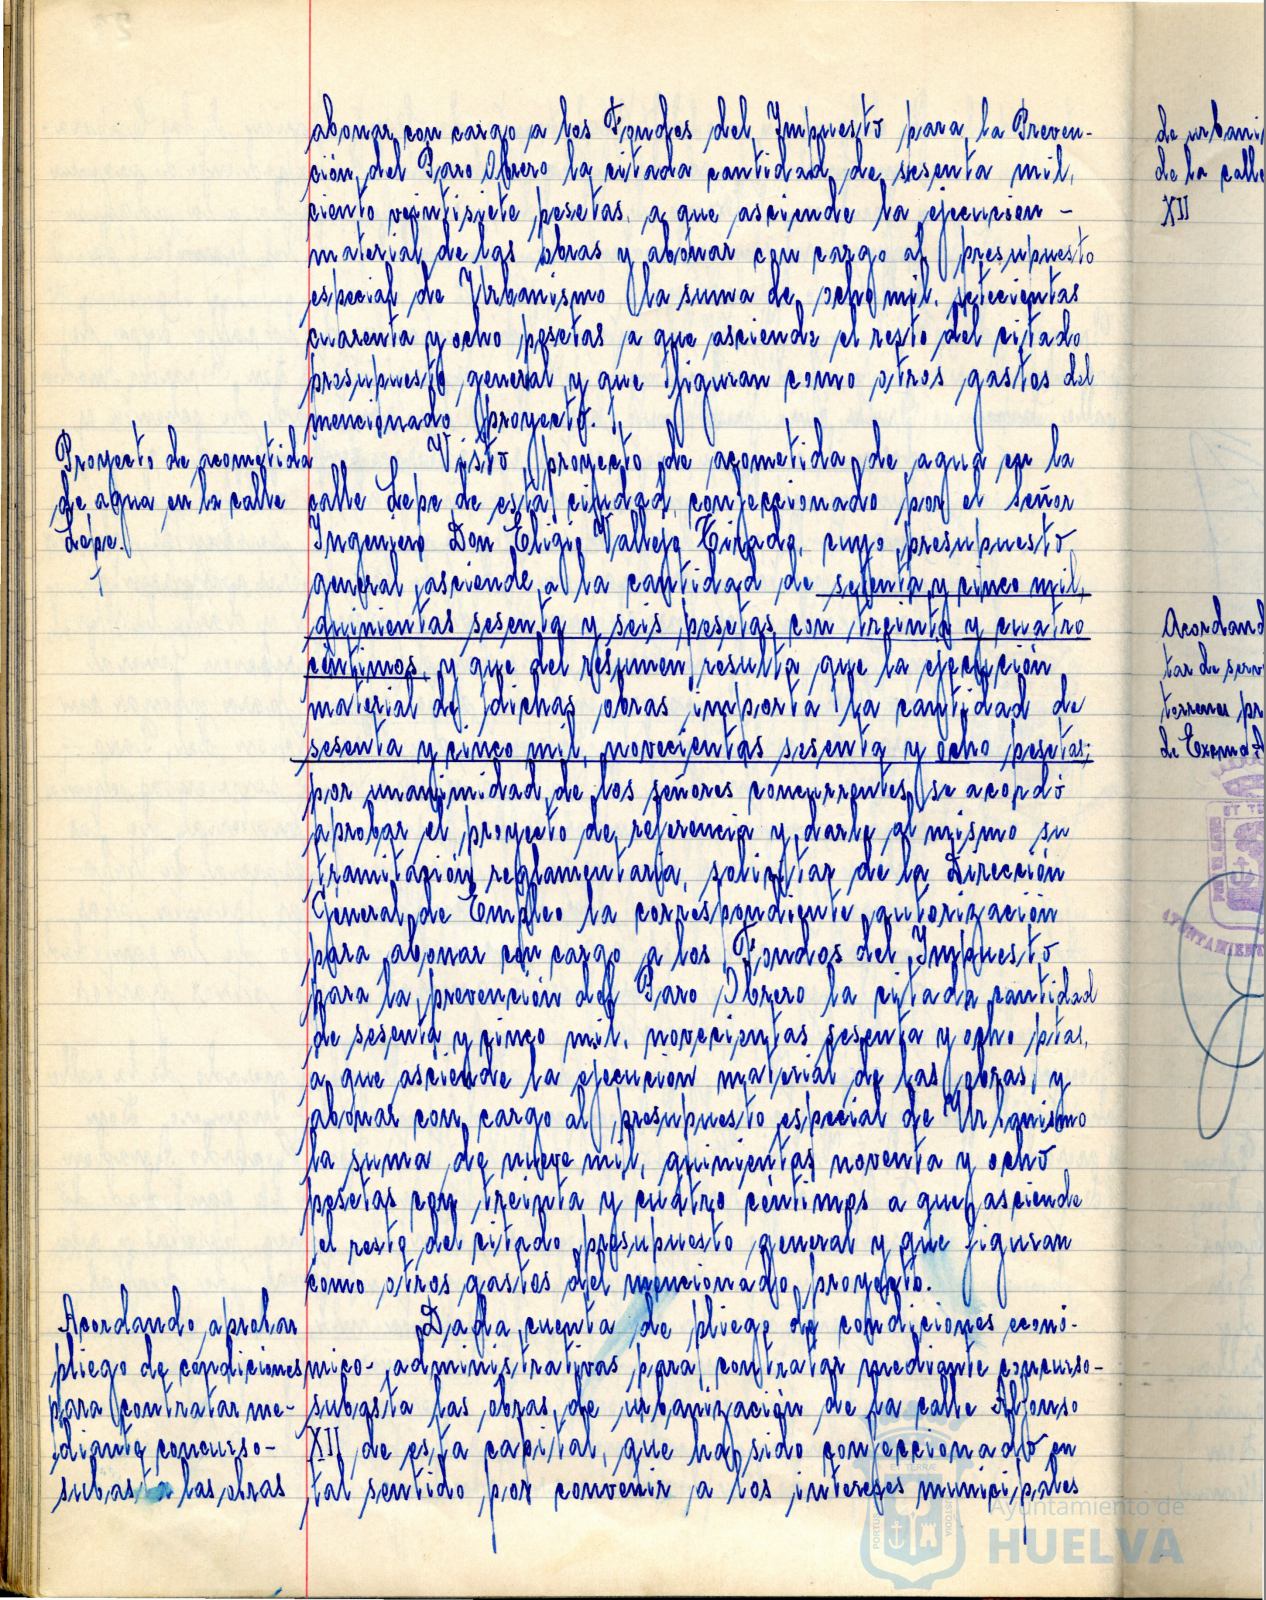 abonar con cargo a los Fondos del Impuesto para la Preven-
ción del Paro Obrero la citada cantidad de sesenta mil,
ciento veintisiete pesetas, a que asciende la ejecución -
material de las obras y abonar con cargo al presupuesto
especial de Urbanismo la suma de ocho mil, setecientas
cuarenta y ocho pesetas a que asciende el resto del citado
presupuesto general y que figuran como otros gastos del
mencionado proyecto.
Proyecto de acometida
de agua en la calle
Lepe.
Visto proyecto de acometida de agua en la
calle Lepe de esta ciudad, confeccionado por el señor
Ingeniero Don Eligio Vallejo Tirado, cuyo presupuesto
general asciende a la cantidad de setenta y cinco mil,
quinientas sesenta y seis pesetas con treinta y cuatro
céntimos, y que del resumen resulta que la ejecución
material de dichas obras importa la cantidad de
sesenta y cinco mil, novecientas sesenta y ocho pesetas;
por unanimidad de los señores concurrentes, se acordó
aprobar el proyecto de referencia y darle al mismo su
tramitación reglamentaria, solicitar de la Dirección
General de Empleo la correspondiente autorización
para abonar con cargo a los Fondos del Impuesto
para la prevención del Paro Obrero la citada cantidad
de sesenta y cinco mil, novecientas sesenta y ocho ptas,
a que asciende la ejecución material de las obras, y
abonar con cargo al presupuesto especial de Urbanismo
la suma de nueve mil, quinientas noventa y ocho
pesetas con treinta y cuatro céntimos a que asciende
el resto del citado presupuesto general y que figuran
como otros gastos del mencionado proyecto.
Acordando aprobar
pliego de condiciones
para contratar me-
diante concurso-
subasta las obras
Dada cuenta de pliego de condiciones econó-
mico-administrativas para contratar mediante concurso-
subasta las obras de urbanización de la calle Alfonso
XII de esta capital, que ha sido confeccionado en
tal sentido por convenir a los intereses municipales
de urbani
de la calle
XII
Acordand
tar de
terrenos pr
de
AYUNTAMIENT
Ayuntamiento de
HUELVA